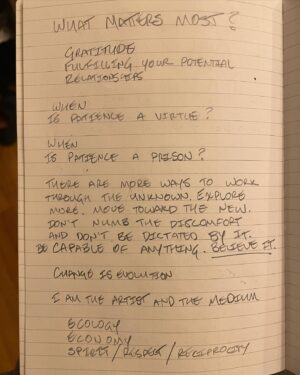 WHAT MATTERS MOST?
GRATITUDE
FULFILLING YOUR POTENTIAL
RELATIONSHIPS
WHEN
IS PATIENCE A VIRTUE?
WHEN
IS PATIENCE A PRISON?
THERE ARE MORE WAYS TO WORK
THROUGH THE UNKNOWN. EXPLORE
MORE. MOVE TOWARD THE NEW.
DON'T NUMB THE DISCOMFORT
AND DON'T BE DICTATED BY IT.
BE CAPABLE OF ANYTHING. BELIEVE IT.
CHANGE IS EVOLUTION
I AM THE ARTIST AND THE MEDIUM
ECOLOGY
ECONOMY
SPIRIT/RESPECT/RECIPROCITY